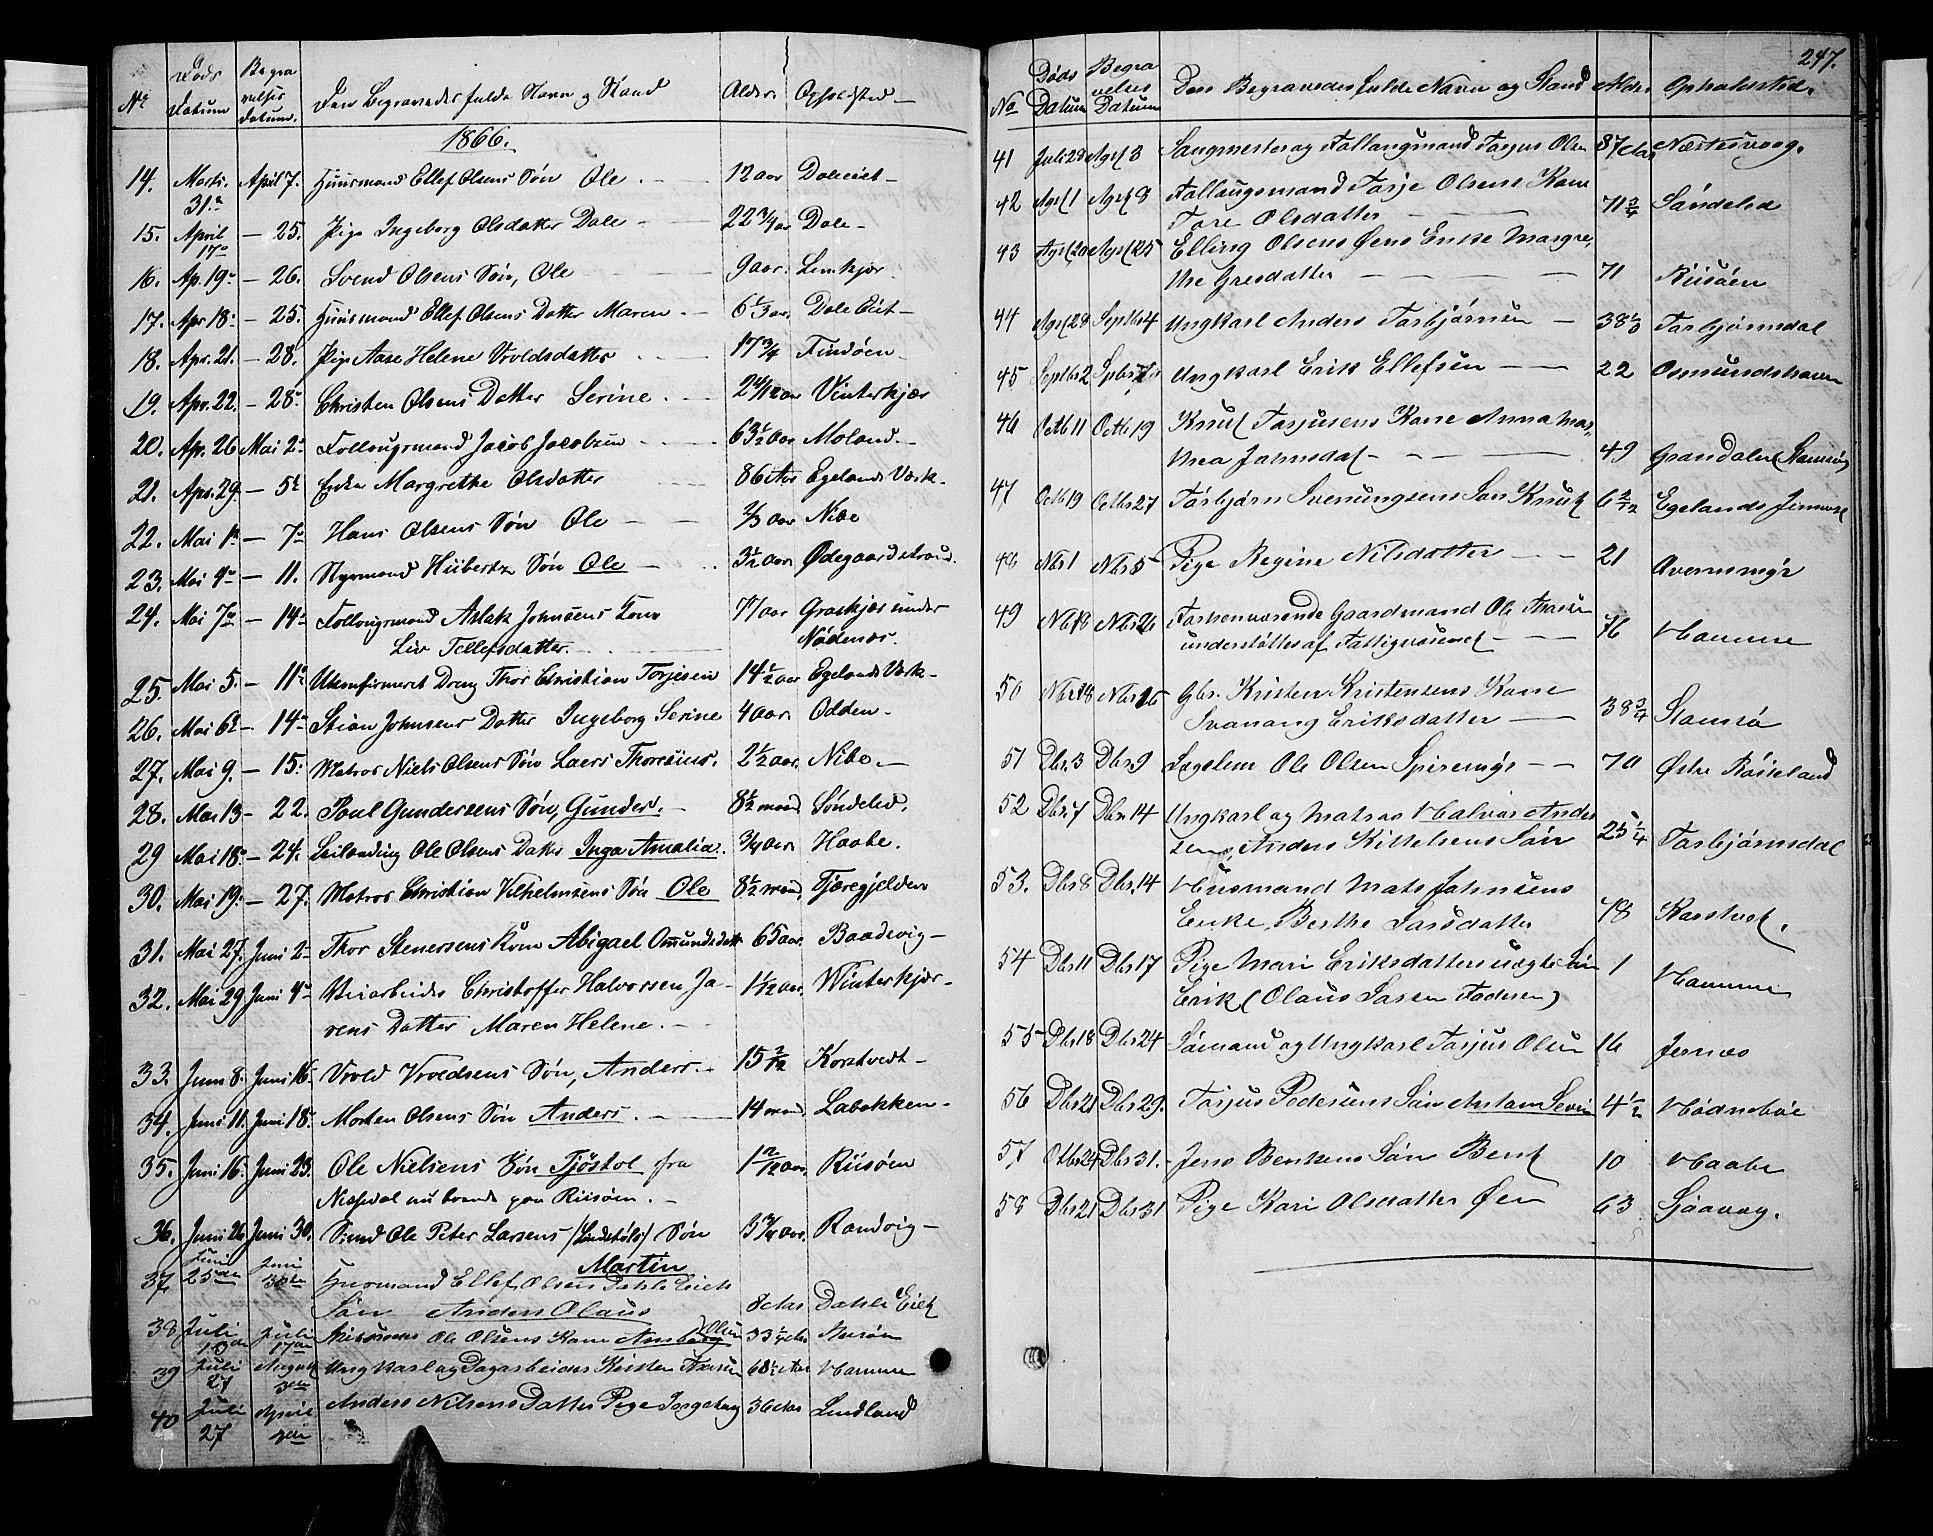 No
Døds
Datum
Begra
velses
Datum
Den Begravedes fulde Navn og Stand
Alder
Opholdssted
1866.
14. Marts 31. April 7. Huusmand Ellef Olsens Søn Ole 12 aar Dale eiet
15. April 17 — 25. Pige Ingeborg Olsdatter Dale 22 3/4 aar Dale
16. Ap. 19 — 26. Svend Olsens Søn, Ole 9 aar. Limkjær
17. Apr 18 — 25. Huusmand Ellef Olsens Datter Maren 6 1/3 aar Dale Eiet
18. Apr. 21. — 28. Pige Aase Helene Vroldsdatter 17 3/4 Findøen
19. Apr. 22. — 28. Christen Olsens Datter Serine 2 4/12 aar Vinterkjær
20. Apr. 26 Mai 2 Follougsmand Jacob Jacobsen 63 1/2 aar Moland
21. Apr. 29. — 5 Enke Margrethe Olsdatter 86 Aar Egelands Værk
22. Mai 1 — 7 Hans Olsens Søn Ole 2/3 aar Nibe
23. Mai 4 — 11. Styrmand Hübertz Søn Ole 3 1/2 aar Ødegaardstrand
24. Mai 7 — 14 Follougsmand Aslak Johnsens Kone 77 aar Graskjær under
Liv Tellefsdatter. Nødenes.
25. Mai 5. — 11 Ukonfirmeret Dreng Thor Christian Torjesen 14 1/2 aar Egelands Værk
26. Mai 6 — 14 Stian Johnsens Datter Ingeborg Serine 4 aar. Odden
27. Mai 9. — 15. Matros Niels Olsens Søn Laers Thoresius. 2 1/2 aar. Nibe.
28. Mai 13 — 22. Poul Gundersens Søn, Gunder. 8 1/2 maad Søndeled.
29 Mai 18 — 24. Leilending Ole Olsens Datter Inga Amalia. 3/4 aar. Haabe.
30. Mai 19. — 27. Matros Christian Vilhelmsens Søn Ole 8 1/2 maad. Tjæregjelden
31. Mai 27. Juni 2 Thor Stenersens Kone Abigael Omundsdatt 65 aar. Baadvig
32. Mai 29 Juni 4 Veiarbeider Christoffer Halvorsen Ja- 1 1/12 aar. Winterkjær
rens Datter Maren Helene.
33. Juni 8. Juni 16. Vrold Vroldsens Søn, Anders 15 2/12 Korstvedt
34. Juni 11. Juni 18. Morten Olsens Søn Anders. 14 maad. Labakken
35. Juni 16. Juni 23. Ole Nielsens Søn Tjøstol fra 1 aar. Riisøen
paa Riisøen.
36. Juni 26 Juni 30. Ole Peter Larsens Søn 3 3/4 aar. Randvig
Martin
37 Juni 25de Juni 30te Huusmand Ellef Olsens Dahle Eiets
Søn Anders Olaus 8 Aar Dahle Eiet
38 Juli Juli 17de Ole Olsens Kone Anberg Olsen 53 1/4 Aar Risøen
39 Juli 27 August 3die Ungkarl og Dagarbeider Kristen Aasen 68 1/2 Aar Hamme
40 Juli 27 Anders Nilsens Datter Pige Ingeborg 36 Aar Lindland
247.
No
Døds
Datum
Begra
velses
Datum
Den Begravedes fulde Navn og Stand
Alder
Opholdssted.
41 Juli 28 Agst 3 Sangmester og Follaugsmand Torjus Olsen 87 Aar Næskevaag.
42 Agst 1 Agst 8 Follaugsmand Torje Olsens Kone
Tore Olsdatter 71 3/4 Søndeled
43 Agst 20 Agst 25 Elling Olsens Øens Enke Margre
the Gresdatter 71 Riisøen
44 Agst 28 Septbr 4 Ungkarl Anders Torbjørnsen 38 1/3 Torbjørnsdal
45 Septbr 2 Spbr 7 Ungkarl Erik Ellefsen 22 Osmundshavn
46 Octb 11 Octb 19 Knut Torjusens Kone Anna Mar
thea Johnsdat 49 Grandalen
47 Octb 19 Octbr 27 Torbjørn Svenungsens Søn Knut 6 2/12 Egelands Jernværk
48 Nbr 1 Nbr 5 Pige Regine Nilsdatter 21 Avernsmyr
49 Nbr 18 Nbr 26 Forhenværende Gaardmand Ole Aasen
understøttes af Fattigvæsenet 76 Hamme
50 Nbr 18 Nbr 26 Gbr. Kristen Kristensens Kone
Svanaug Eriksdatter 38 3/4 Stamsø
51 Dbr. 3 Dbr. 9 Lægslem Ole Olsen Spiremyr 70 Østre Røiseland
52 Dbr. 7 Dbr 14 Ungkarl og Matros Halvor Ander
sen, Anders Kittelsens Søn 25 1/4 Torbjørnsdal
53. Dbr 8 Dbr. 14 Husmand Mats Johnsens
Enke, Berthe Larsdatter 78 Karstvet.
54 Dbr 11 Dbr 17 Pige Mari Eriksdatters uægte Søn 1 Hamme
Erik (Olaus Lassen Faderen)
55 Dbr 18 Dbr 24 Sømand og Ungkarl Torjus Olsen 16 Jernæs
56 Dbr 21 Dbr 29. Torjus Pedersens Søn Anton Severin 4 1/2 Hødnebøe
57 24 Dbr 31. Jens Bentsens Søn Bent 10 Haabe
58 Dbr 21 Dbr 31 Pige Kari Olsdatter Øen 63 Sjøavaag.